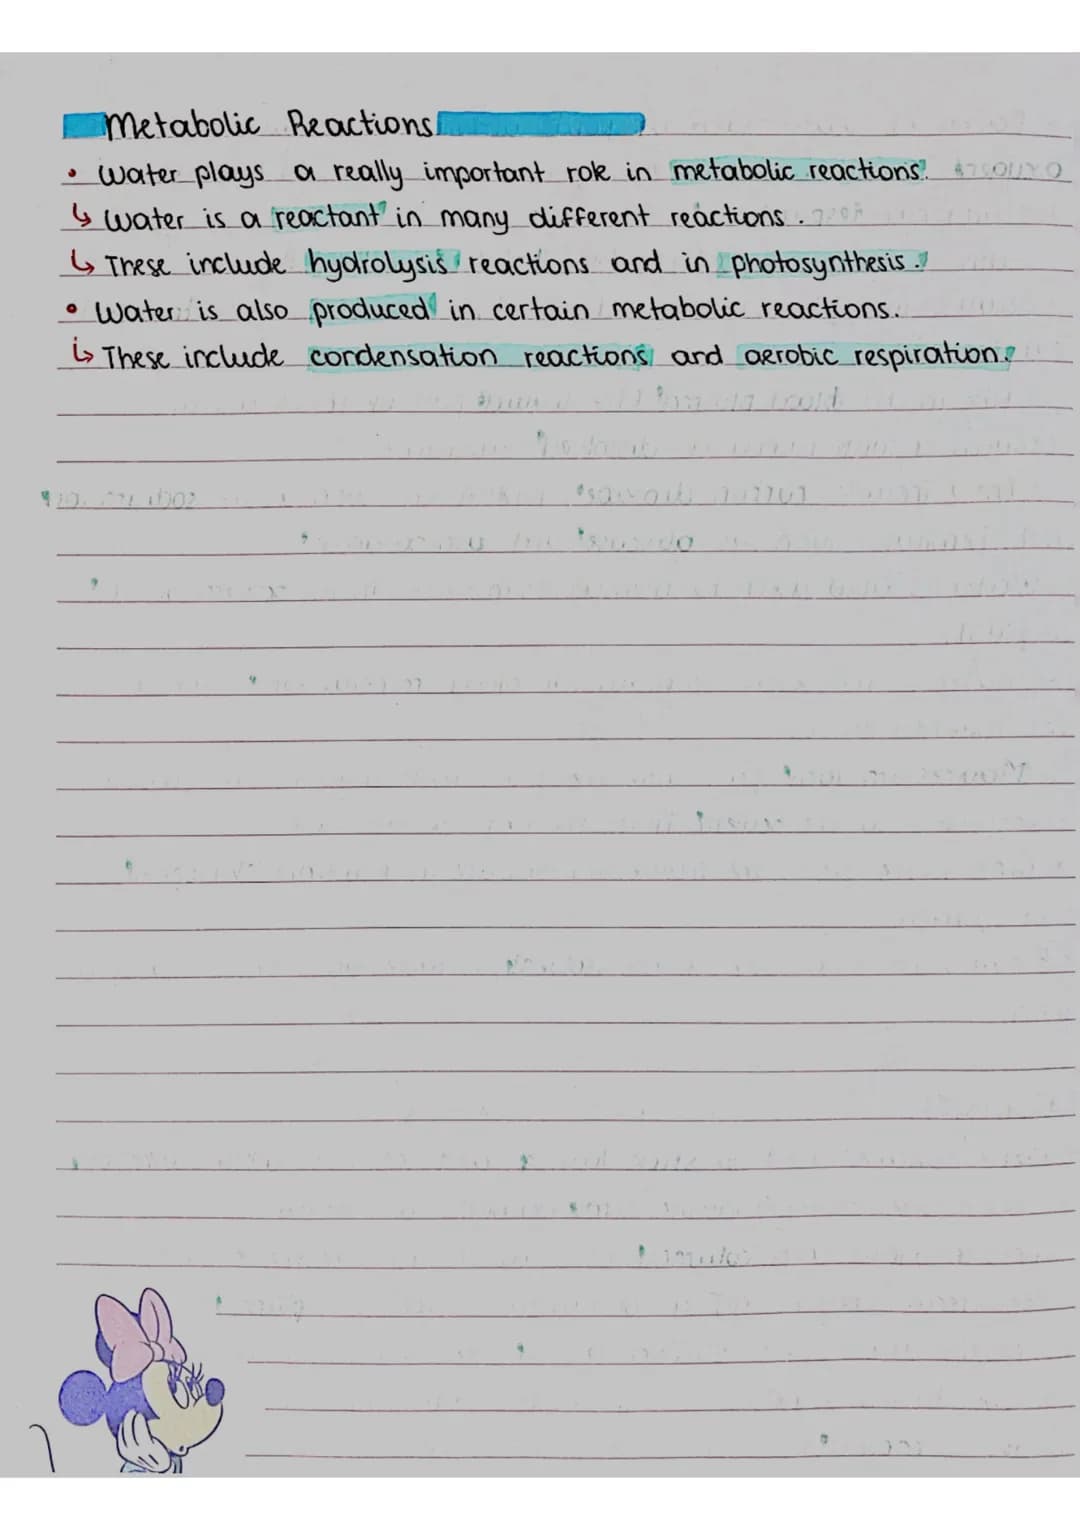 Metabolic Reactions
• Water plays a really important role in metabolic reactions.
↳ Water is a reactant in many different reactions.
↳ These include hydrolysis reactions and in photosynthesis.
• Water is also produced in certain metabolic reactions.
↳ These include condensation reactions and aerobic respiration.